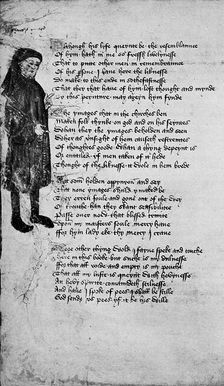 Although his life queynt be the resemblaunce
Of hym hath in me so fressh lyflynesse
That to putte other men in remembraunce
Of his persone I have heere his liknesse
Do make to this ende in sothfastnesse
That they that have of hym lost thought and mynde
By this peynture may ageyn hym fynde
The ymages that in the chirches been
Maken folk thynke on god and on his seyntes
Whan they the ymages beholden and seen
Where as unsight of hem causeth restreyntes
Of thoughtes goode whan a thyng depeynt is
Or entailed if men taken of it heede
Thoght of the liknesse it wole in hem breede
Yet som holden oppynyon and sey
That none ymages shuld ymaked be
They erren foule and goon out of the wey
Of trouth have they skant sensibilite
Passe over now that blessed trinite
Upon my maistres soule mercy have
For hym lady eke thy mercy I crave
More other thyng wold I fayne speke and touche
Heere in this booke but such is my dulnesse
For that all voide and empty is my pouche
That all my lust is queynt with hevynesse
And hevy spirite comaundeth stilnesse
And have I spoke of pees I shall be stille
God sende us pees if it be his wille